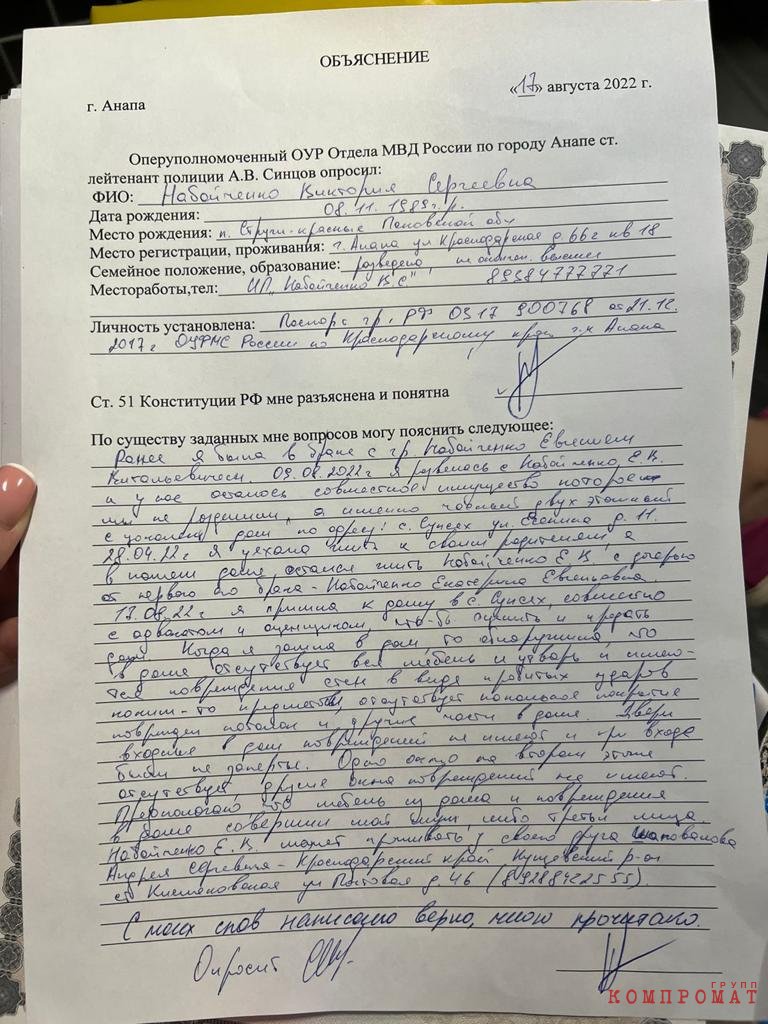 ОБЪЯСНЕНИЕ
«17» августа 2022 г.
г. Анапа
Оперуполномоченный ОУР Отдела МВД России по городу Анапе ст.
лейтенант полиции А.В. Синцов опросил:
ФИО: Набойченко Виктория Сергеевна
Дата рождения: 08.11.1989 г.р.
Место рождения: п. Струги-красные Псковской обл
Место регистрации, проживания: г. Анапа ул Краснодарская д. 66г кв 18
Семейное положение, образование: разведена, высшее
Местоработы,тел: ИП „Набойченко В.С" 89384777771
Личность установлена: Паспорт гр. РФ 0317 900768 от 21.12.
2017г ОУФМС России по Краснодарскому краю г-к Анапа
Ст. 51 Конституции РФ мне разъяснена и понятна
По существу заданных мне вопросов могу пояснить следующее:
Ранее я была в браке с гр. Набойченко Евгением
Витальевичем. 09.08.2022г я развелась с Набойченко Е.В.
и у нас осталось совместное имущество которое
мы не разделили, а именно частный двух этажный
с цоколем дом по адресу: с. Супсех ул. д. 11.
28.04.22г я уехала жить к своим родителям, а
в нашем доме остался жить Набойченко Е.В. с дочерью
от первого его брака - Набойченко Екатерина Евгеньевна.
17.08.22г я пришла к дому в с. Супсех, совместно
с адвокатом и оценщиком, что-бы оценить и продать
дом. Когда я зашла в дом, то обнаружила, что
в доме отсутствует вся мебель и утварь и имею-
тся повреждения стен в виде пробитых ударов
каким-то предметом, отсутствует напольное покрытие
поврежден потолок и другие части в доме. Двери
входные в дом повреждений не имеют и при входе
были не заперты. Одно окно на втором этаже
отсутствует, другие окна повреждений не имеют.
Предполагаю, что мебель из дома и повреждения
в доме совершил мой муж, либо третьи лица.
Набойченко Е.В. может проживать у своего друга Шаповалова
Андрея Сергеевича - Краснодарский край Кущевский р-он
ст Кисляковская ул Постовая д. 46 (89288422555).
С моих слов написано верно, мною прочитано.
Опросил
ГРУПП
КОМПРОМАТ